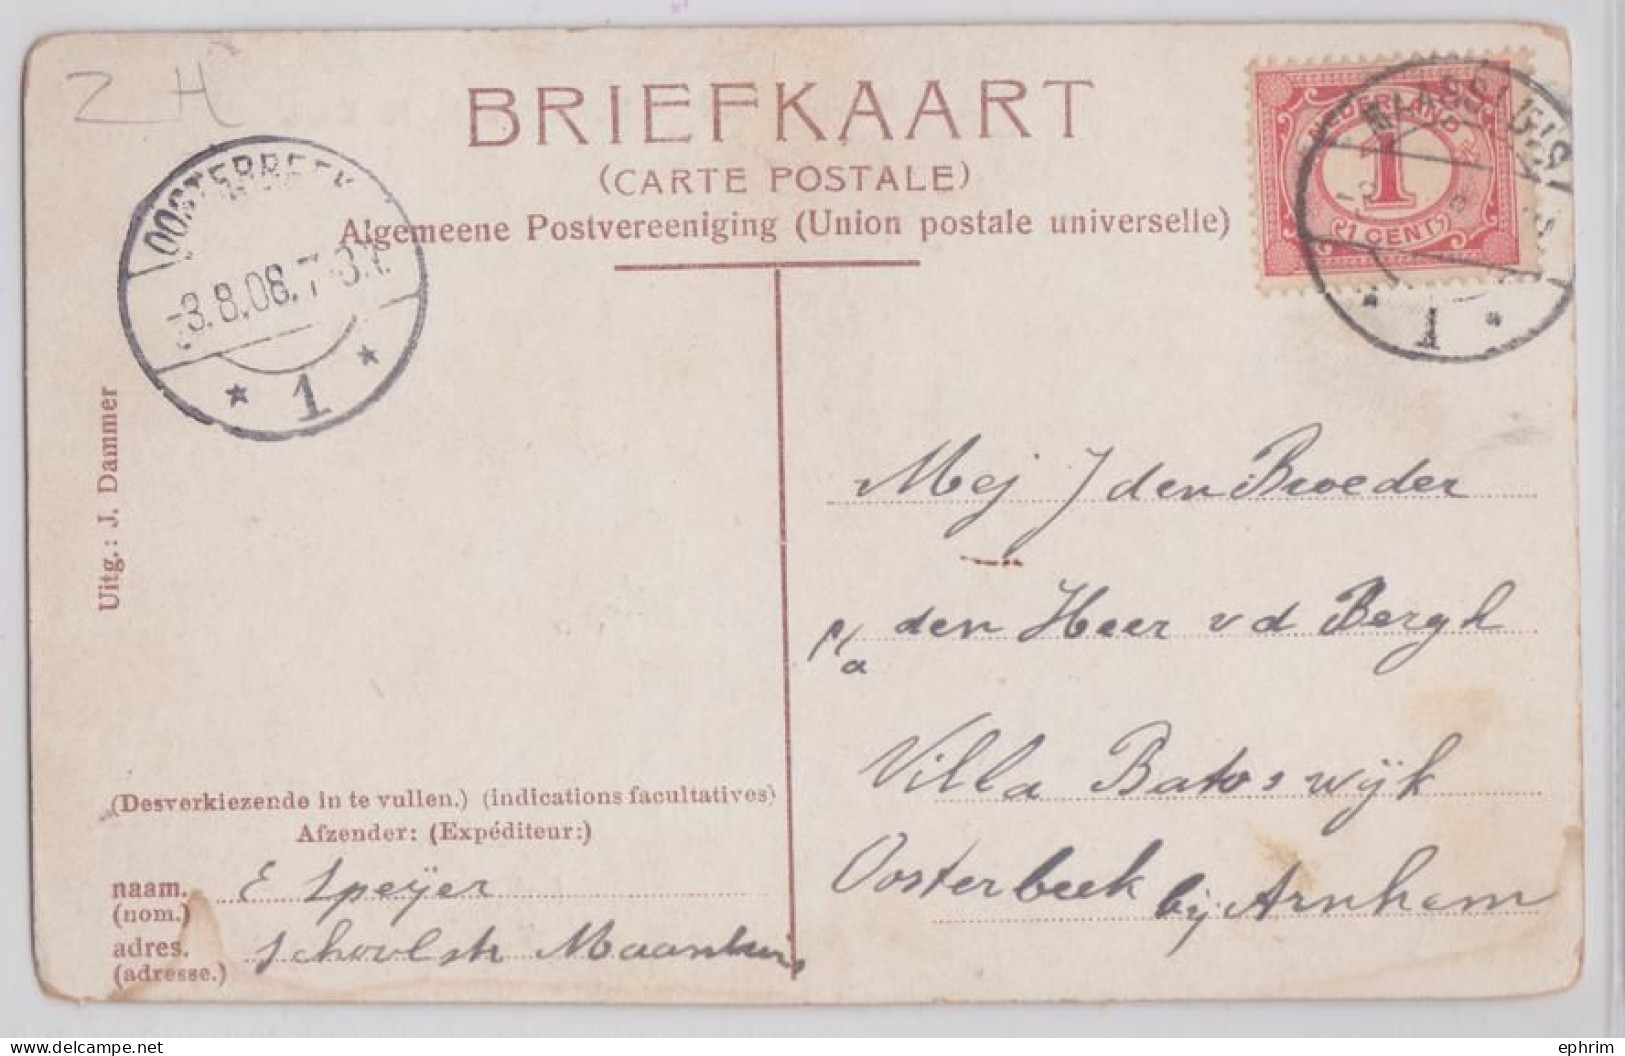 Z H
BRIEFKAART
(CARTE POSTALE)
Algemeene Postvereeniging (Union postale universelle)
OOSTERBEEK
-3.8.08.7-8.V.
1
NEDERLAND
1
1 CENT
MAASSLUIS
1
Uitg.: J. Dammer
Mej J den Broeder
p/a den Heer v d Bergh
Villa Batos wijk
Oosterbeek bij Arnhem
(Desverkiezende in te vullen.) (indications facultatives)
Afzender: (Expéditeur:)
naam. E Speijer
(nom.)
adres. Schoolstr Maassluis
(adresse.)
delcampe.net
ephrim